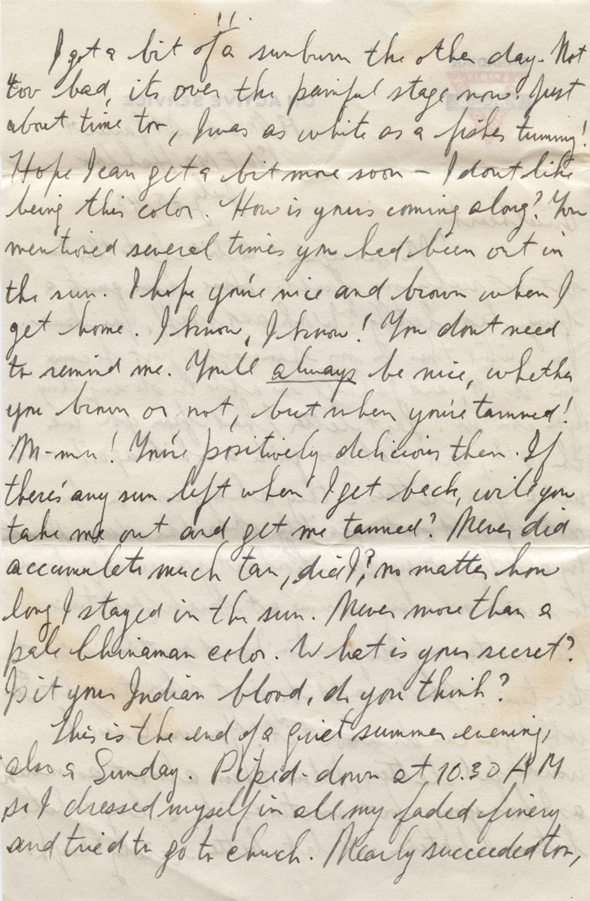 11
I got a bit of a sunburn the other day. Not
too bad, its over the painful stage now. Just
about time too, I was as white as a fishes tummy!
Hope I can get a bit more soon - I dont like
being this color. How is yours coming along? You
mentioned several times you had been out in
the sun. I hope you're nice and brown when I
get home. I know, I know! You dont need
to remind me. You'll always be nice, whether
you brown or not, but when you're tanned!
M-mm! You're positively delicious then. If
there's any sun left when I get back, will you
take me out and get me tanned? Never did
accumulate much tan, did I, no matter how
long I stayed in the sun. Never more than a
pale Chinaman color. What is your secret?
Is it your Indian blood, do you think?
This is the end of a quiet summer evening,
also a Sunday. Piped-down at 10.30 AM
so I dressed myself in all my faded finery
and tried to go to church. Nearly succeeded too,